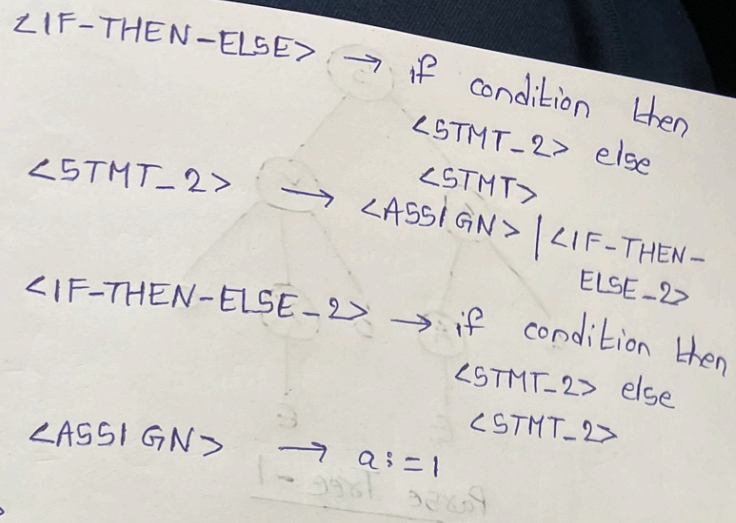 <IF-THEN-ELSE> → if condition then
<STMT_2> else
<STMT>
<STMT_2> → <ASSIGN> | <IF-THEN-
ELSE_2>
<IF-THEN-ELSE_2> → if condition then
<STMT_2> else
<STMT_2>
<ASSIGN> → a:=1
Parse Tree-1